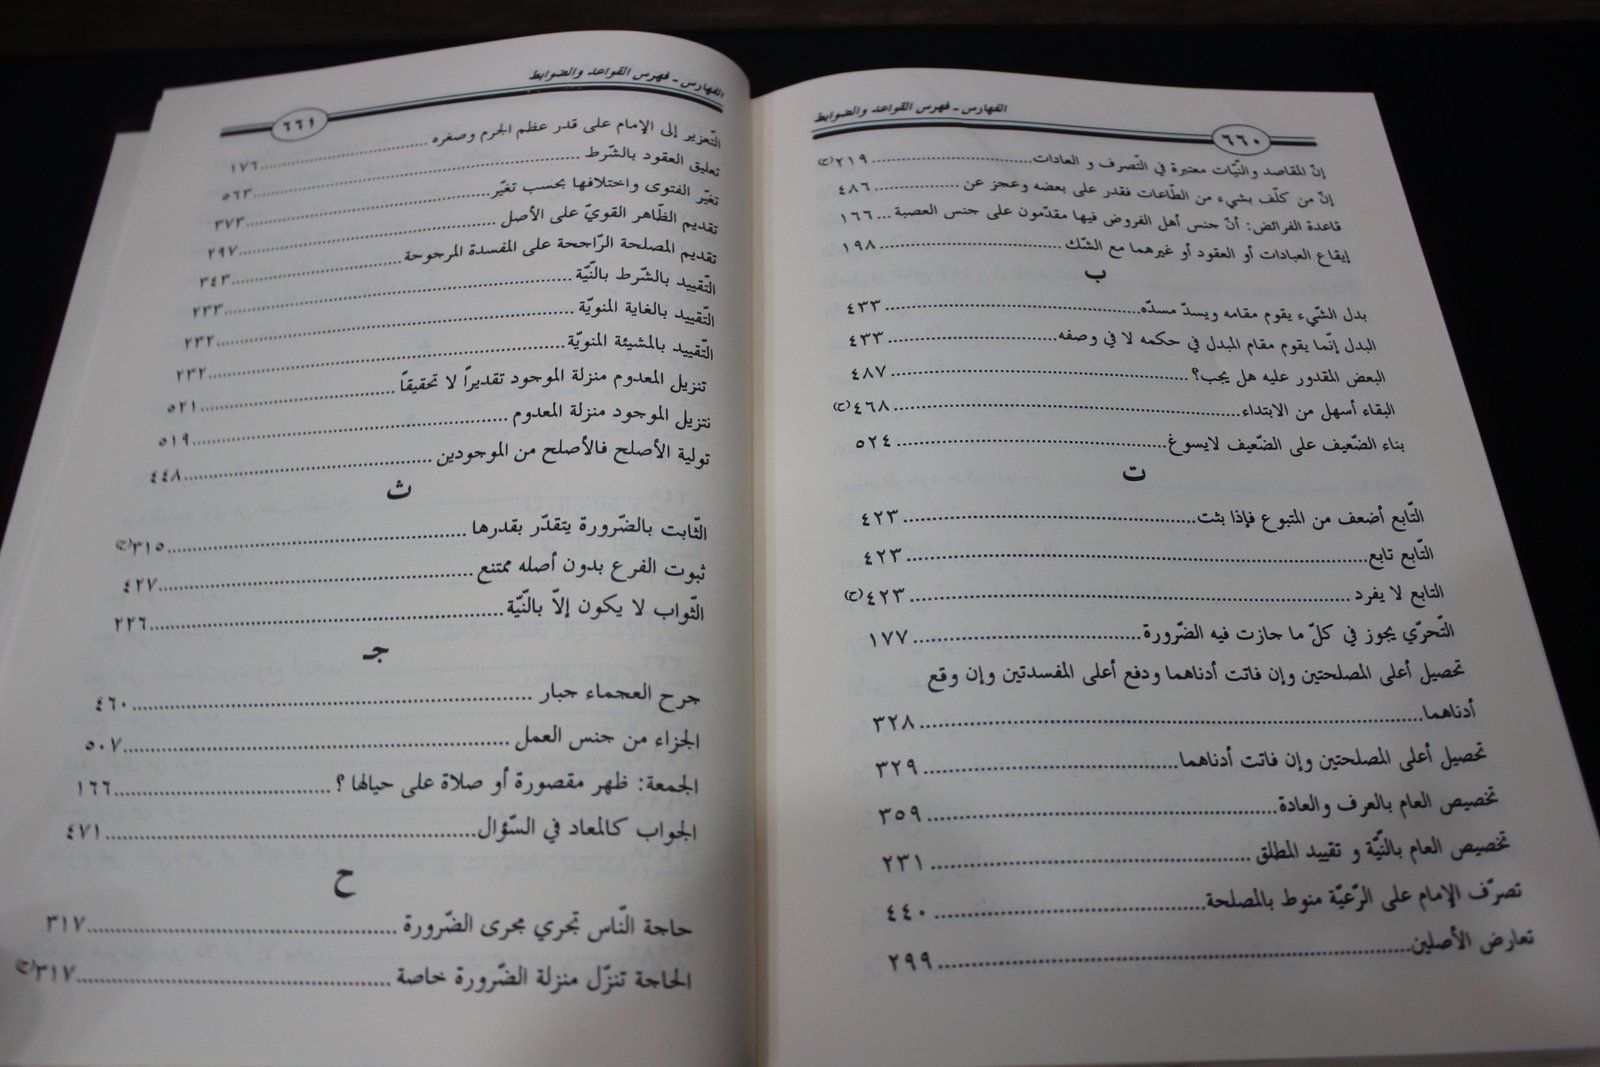 الفهارس ـ فهرس القواعد والضوابط
٦٦٠
إنّ المقاصد والنّيّات معتبرة في التّصرف و العادات ............ ٢١٩(ح)
إنّ من كلّف بشيء من الطّاعات فقدر على بعضه وعجز عن ............ ٤٨٦
قاعدة الفرائض: أنّ جنس أهل الفروض فيها مقدّمون على جنس العصبة ... ١٦٦
إيقاع العبادات أو العقود أو غيرهما مع الشّك ............ ١٩٨
ب
بدل الشّيء يقوم مقامه ويسدّ مسدّه ............ ٤٣٣
البدل إنّما يقوم مقام المبدل في حكمه لا في وصفه ............ ٤٣٣
البعض المقدور عليه هل يجب؟ ............ ٤٨٧
البقاء أسهل من الابتداء ............ ٤٦٨(ح)
بناء الضّعيف على الضّعيف لايسوغ ............ ٥٢٤
ت
التّابع أضعف من المتبوع فإذا بثت ............ ٤٢٣
التّابع تابع ............ ٤٢٣
التابع لا يفرد ............ ٤٢٣(ح)
التّحرّي يجوز في كلّ ما جازت فيه الضّرورة ............ ١٧٧
تحصيل أعلى المصلحتين وإن فاتت أدناهما ودفع أعلى المفسدتين وإن وقع
أدناهما ............ ٣٢٨
تحصيل أعلى المصلحتين وإن فاتت أدناهما ............ ٣٢٩
تخصيص العام بالعرف والعادة ............ ٣٥٩
تخصيص العام بالنّيّة و تقييد المطلق ............ ٢٣١
تصرّف الإمام على الرّعيّة منوط بالمصلحة ............ ٤٤٠
تعارض الأصلين ............ ٢٩٩
الفهارس ـ فهرس القواعد والضوابط
٦٦١
التّعزير إلى الإمام على قدر عظم الجرم وصغره ............ ١٧٦
تعليق العقود بالشّرط ............ ٥٦٣
تغيّر الفتوى واختلافها بحسب تغيّر ............ ٣٧٣
تقديم الظّاهر القويّ على الأصل ............ ٢٩٧
تقديم المصلحة الرّاجحة على المفسدة المرجوحة ............ ٣٤٣
التّقييد بالشّرط بالنّيّة ............ ٢٣٣
التّقييد بالغاية المنويّة ............ ٢٣٢
التّقييد بالمشيئة المنويّة ............ ٢٣٢
تنزيل المعدوم منزلة الموجود تقديراً لا تحقيقاً ............ ٥٢١
نتزيل الموجود منزلة المعدوم ............ ٥١٩
تولية الأصلح فالأصلح من الموجودين ............ ٤٤٨
ث
الثّابت بالضّرورة يتقدّر بقدرها ............ ٣١٥(ح)
ثبوت الفرع بدون أصله ممتنع ............ ٤٢٧
الثّواب لا يكون إلاّ بالنّيّة ............ ٢٢٦
جـ
جرح العجماء جبار ............ ٤٦٠
الجزاء من جنس العمل ............ ٥٠٧
الجمعة: ظهر مقصورة أو صلاة على حيالها ؟ ............ ١٦٦
الجواب كالمعاد في السّؤال ............ ٤٧١
ح
حاجة النّاس تجري مجرى الضّرورة ............ ٣١٧
الحاجة تنزّل منزلة الضّرورة خاصة ............ ٣١٧(ح)